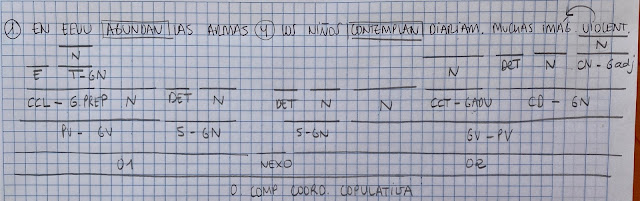 ① EN EEUU ABUNDAN LAS ARMAS Y LOS NIÑOS CONTEMPLAN DIARIAM. MUCHAS IMÁG. VIOLENT.
N N
E T-GN N DET N CN-Gadj
CCL-G.PREP N DET N DET N N CCT-GADV CD-GN
PV-GV S-GN S-GN GV-PV
O1 NEXO O2
O. COMP. COORD. COPULATIVA